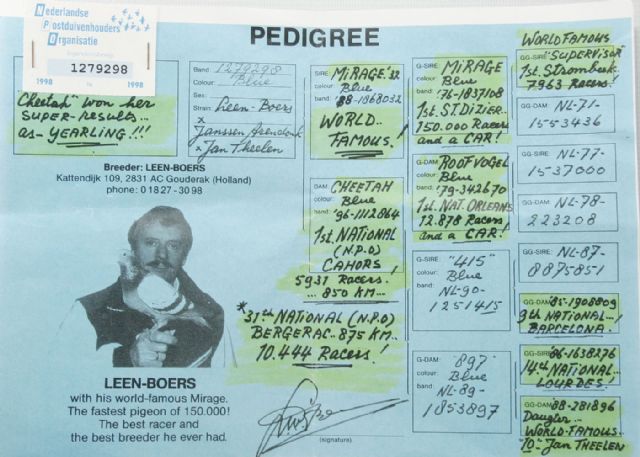 Nederlandse
Postduivenhouders
Organisatie
1279298
1998
1998
Cheetah" won her
SUPER-results..
as- YEARLING!!!
PEDIGREE
Band 1279298
Colour: Blue
Sex:
Strain: Leen-Boers
x
Janssen Arendonk
x Jan Theelen
Breeder: LEEN-BOERS
Kattendijk 109, 2831 AC Gouderak (Holland)
phone: 0 18 27 - 30 98
LEEN-BOERS
with his world-famous Mirage.
The fastest pigeon of 150.000!
The best racer and
the best breeder he ever had.
SIRE: MIRAGE
colour: Blue
band: '88-1868032
WORLD..
FAMOUS!
DAM: CHEETAH
colour: Blue
band: '96-1112864
1st. NATIONAL
(N.P.O)
CAHORS
5931 Racers.
... 850 KM...
* 31st NATIONAL (N.P.O)
BERGERAC.. 875 KM..
10.444 Racers!
(signature).
G-SIRE: MIRAGE
colour: Blue
band: '76-1837108
1st. ST. DIZIER.
150.000 Racers
and a CAR!
G-DAM: ROOFVOGEL
colour: Blue
band: '79-342670
1st. NAT. ORLEANS
12.878 Racers
and a CAR!
G-SIRE: "415"
colour: Blue
band: NL-90-
1251415
G-DAM: "897"
colour: Blue
band: NL-89-
1853897
WORLD FAMOUS
GG-SIRE: "SUPERVISOR"
1st. Strombeek
7963 Racers!
GG-DAM: NL-71-
1553436
GG-SIRE: NL-77-
1537000
GG-DAM: NL-78-
223208
GG-SIRE: NL-87-
8875851
GG-DAM: 85-1908809
9th NATIONAL..
BARCELONA.
GG-SIRE: 86-1638276
14th NATIONAL..
LOURDES!
GG-DAM: 88-281896
Daugter
WORLD-FAMOUS
"10" Jan THEELEN